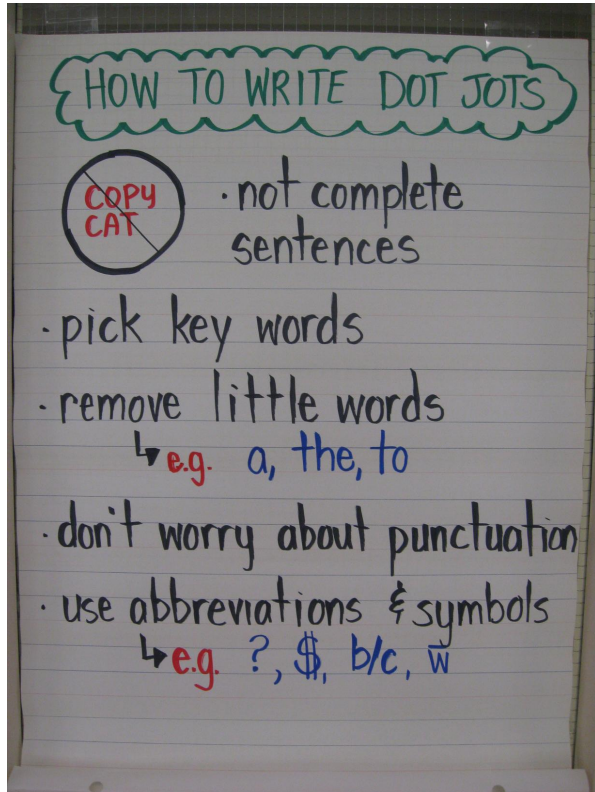 HOW TO WRITE DOT JOTS
COPY
CAT
· not complete
sentences
· pick key words
· remove little words
↳ e.g. a, the, to
· don't worry about punctuation
· use abbreviations & symbols
↳ e.g. ?, $, b/c, w̅